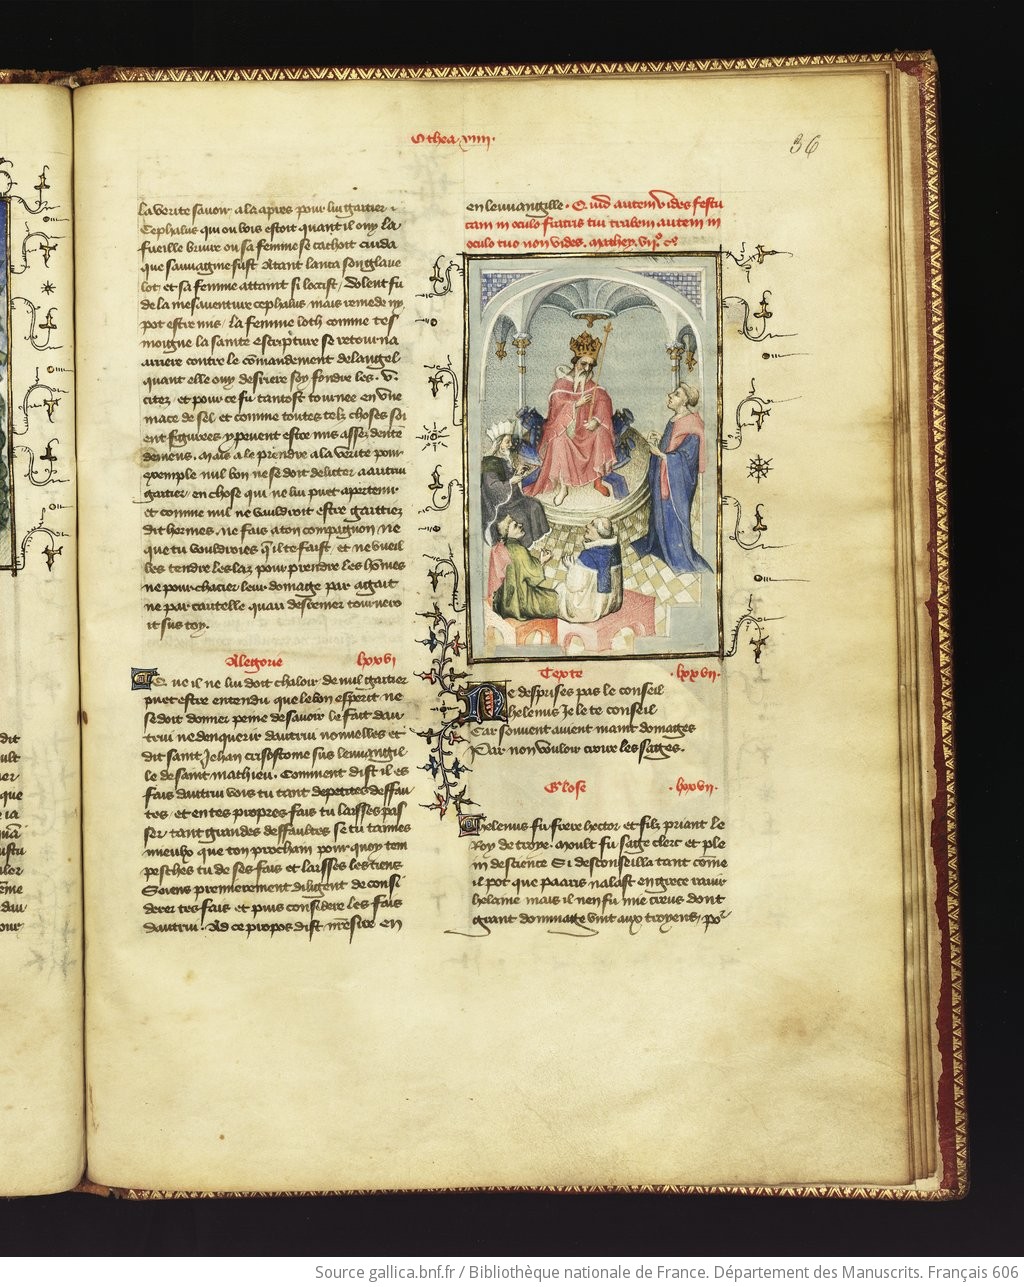 Othea. viiii.
36
la verite savoir a la apres pour lui gaitier.
Cephalus qui ou bois estoit quant il ouy la
fueille bruire ou sa femme se cachoit cuida
que sauvagine fust Atant lanca son glave
lot et sa femme attaint si locist / Dolent fu
de la mesaventure cephalus mais remede ny
pot estre mis / la femme loth comme tes
moigne la sainte escripture se retourna
arriere contre le cōmandement de langel
quant elle ouy derriere soy fondre les .v.
citez et pour ce fu tantost tournee en une
mace de sel et comme toutes telz choses soi
ent figures y pevent estre mis assez dentē
demens. Mais a le prendre a la verite pour
exemple nul bon ne se doit delitter a autrui
gaitier en chose qui ne lui puet apartenir
et comme nul ne vauldroit estre gaittiez
dit hermes. ne fais a ton compagnon ne
que tu vouldroies q̄ il te faist et ne vueil
les tendre les laz pour prendre les hōmes
ne pourchacier leur domage par agait
ne par cautelle quau derrenier tournero
it sus toy.
Alegorie lxxvi
Que il ne lui doit chaloir de nul gaitier
puet estre entendu que le bon esperit ne
se doit donner peine de savoir le fait dau
trui ne denquerir dautrui nouvelles et
dit saint Jehan crisostome sus leuvangil
le de saint mathieu. Comment dist il es
fais dautrui vois tu tant de petites deffau
tes et en tes propres fais tu laisses pas
ser tant grandes deffaultes se tu taimes
mieulx que ton prochain pour quoy tem
pesches tu de ses fais et laisses les tiens
Soiens premierement diligent de consi
derer tes fais et puis considere les fais
dautrui. Ad ce propos dist nr̄e sire en
en leuvangille. Quid autem vides festu
cam in oculo fratris tui trabem autem in
oculo tuo non vides. Mathey. vijº. cº
Texte .lxxvii.
Ne desprises pas le conseil
helenus Je le te conseil
Car souvent avient maint domages
Par non vouloir croire les sages.
Glose .lxxvii.
Helenus fu frere hector et filz priant le
Roy de troye. Moult fu sage clerc et ple
in de science Si desconseilla tant cōme
il pot que paaris nalast en grece ravir
helaine mais il nen fu mie creus dont
grant dommage vint aux troyens / por
Source gallica.bnf.fr / Bibliothèque nationale de France. Département des Manuscrits. Français 606